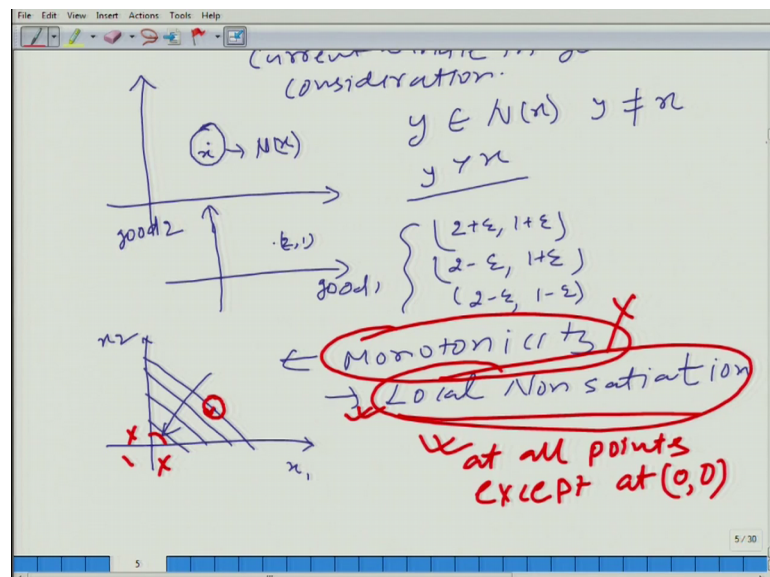 File Edit View Insert Actions Tools Help
consideration.
y ∈ N(x) y ≠ x
x → N(x)
y > x
good 2
(2,1)
good 1
(2+ε, 1+ε)
(2-ε, 1+ε)
(2-ε, 1-ε)
x2
x
← Monotonicity
→ Local Non satiation
x x
x1
at all points
except at (0,0)
5 / 30
5